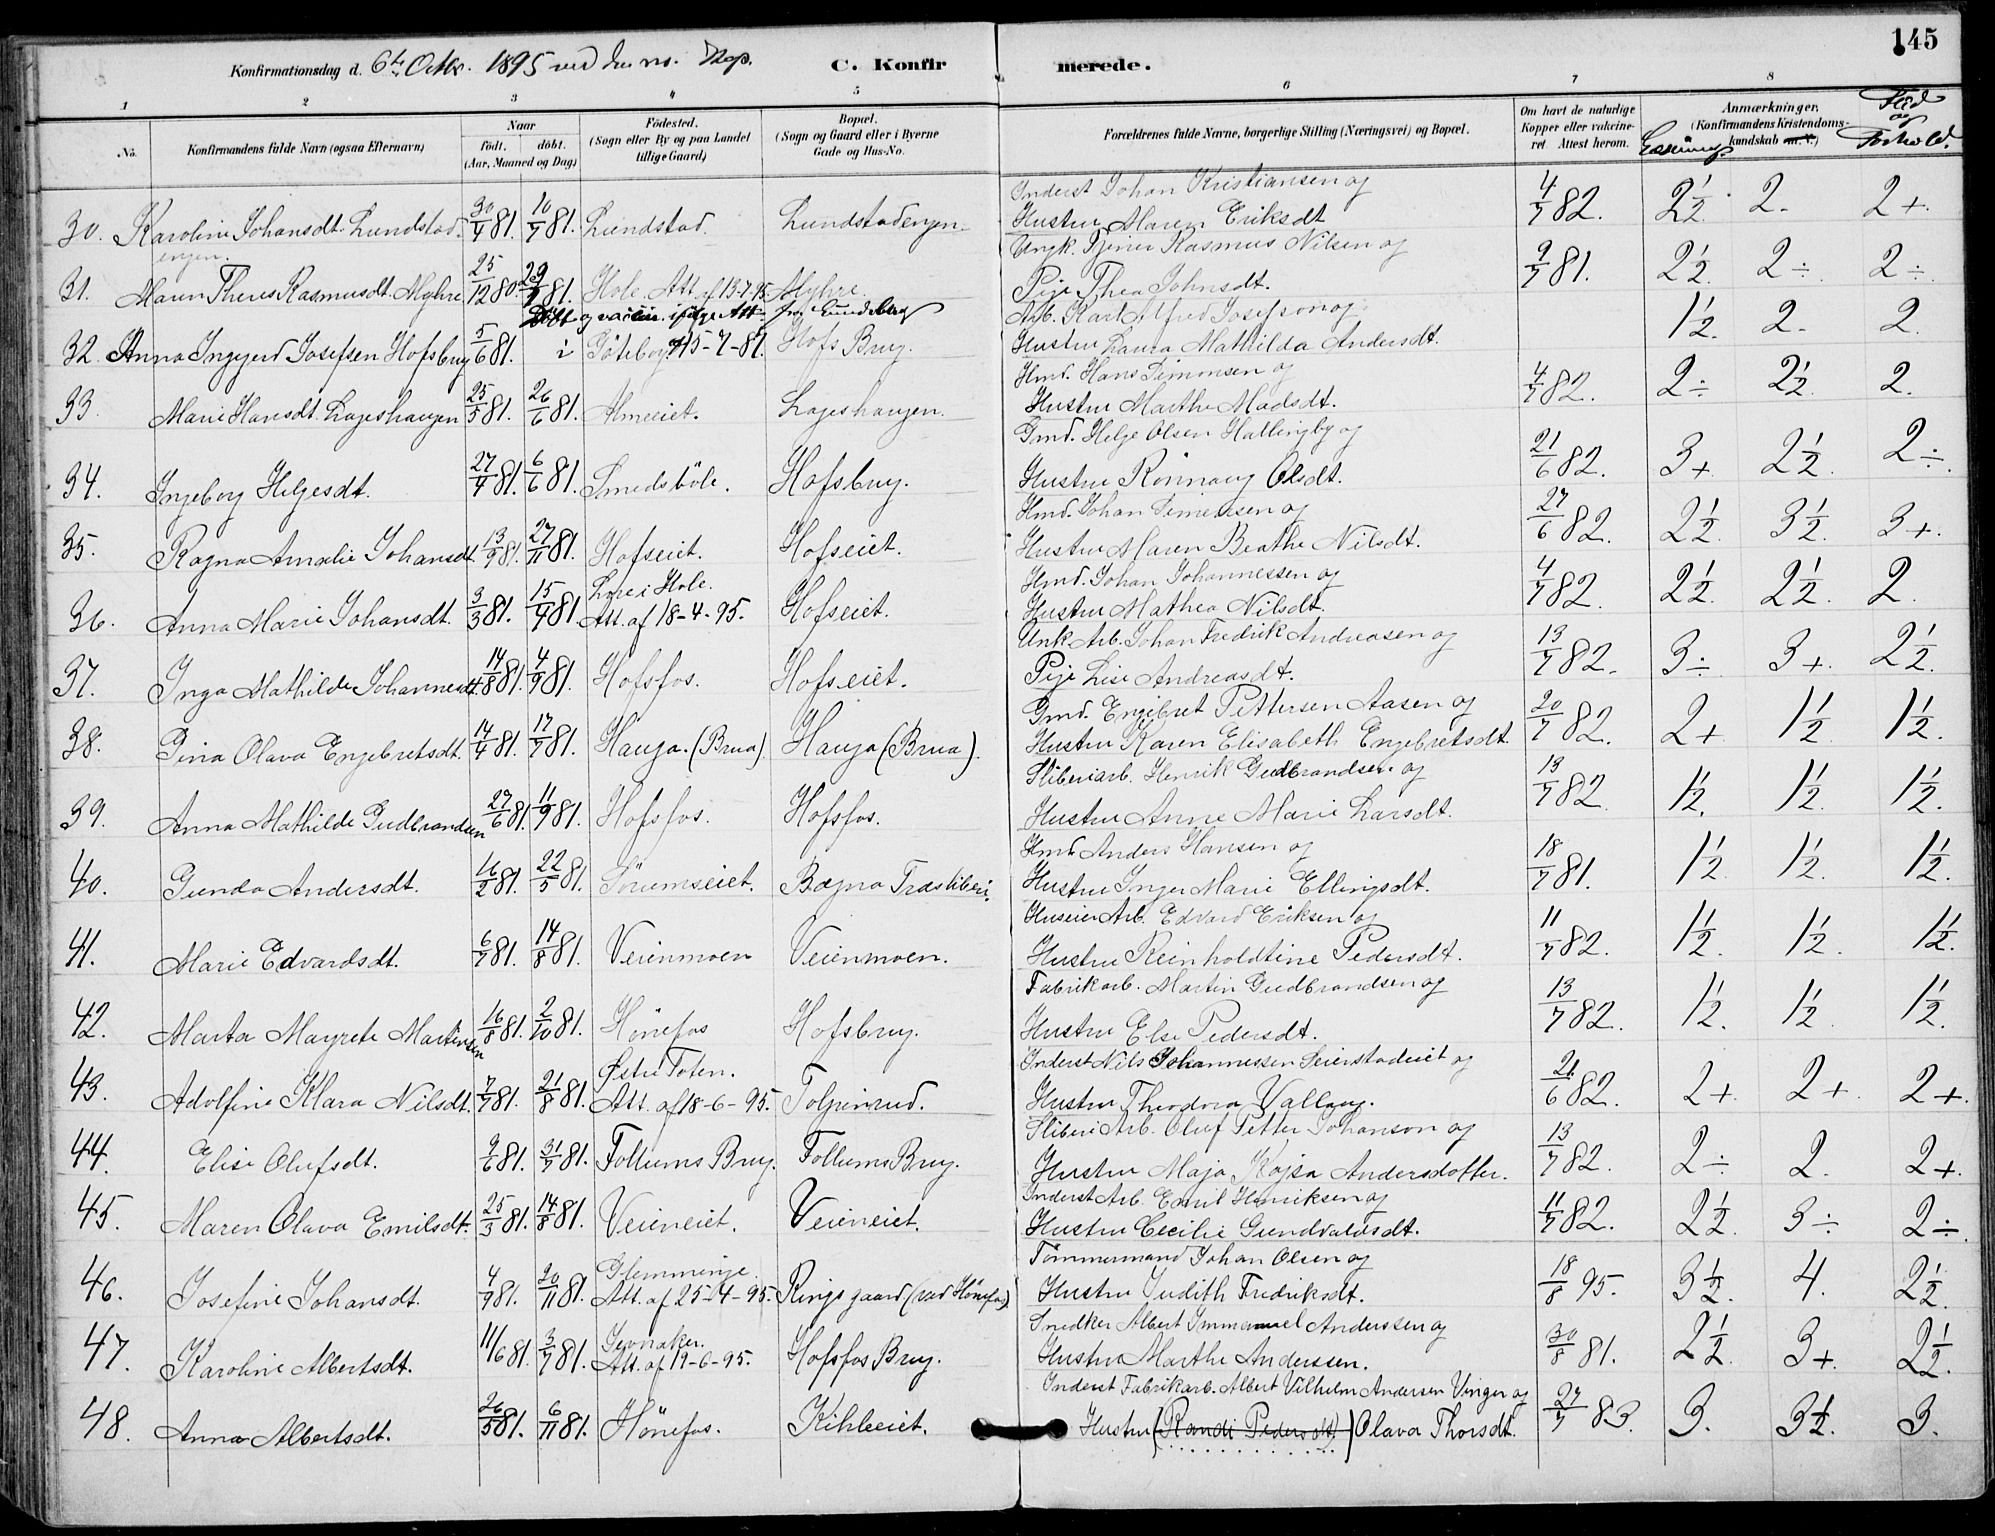 145
Konfirmationsdag d. 6te Octbr. 1895 ved den res. Kap. C. Konfirmerede.
1 2 3 4 5 6 7 8
No. Konfirmandens fulde Navn (ogsaa Efternavn) Naar født. døbt. (Aar, Maaned og Dag) Fødested. (Sogn eller By og paa Landet tillige Gaard) Bopæl. (Sogn og Gaard eller i Byerne Gade og Hus-No. Forældrenes fulde Navne, borgerlige Stilling (Næringsvei) og Bopæl. Om havt de naturlige Kopper eller vakcineret. Attest herom. Anmærkninger. (Konfirmandens Kristendomskundskab m. v.) Læsning. Flid og Forhold.
30. Karoline Johansdt. Lundstadengen. 30/4 81. 10/7 81. Lundstad. Lundstadengen. Inderst Johan Kristiansen og Hustru Maren Eriksdt 4/7 82. 2 1/2. 2. 2+.
31. Maren Theres Rasmusdt. Myhre 25/12 80. 29/ 81. Hole. Att. af 13-7-95. Myhre. Ungk. Tjener Rasmus Nilsen og Pige Thea Johnsdt. 9/7 81. 2 1/2 2÷ 2÷.
Døbt og vaccin. ifølge Att. fra Gundebug
32. Anna Ingegerd Josefsen Hofsbrug 5/6 81. i Göteborg 15-7-81. Hofs Brug. Arb. Karl Alfred Josefson og Hustru Laura Mathilda Andersdt. 1 1/2. 2. 2
33. Marie Hansdt. Lageshaugen 25/5 81. 26/6 81. Almeeiet. Lageshaugen. Hmd. Hans Simonsen og Hustru Marthe Madsdt. 4/7 82. 2÷ 2 1/2. 2.
34. Ingeborg Helgesdt. 27/4 81. 6/6 81. Smedsböle. Hofsbrug. Gmd. Helge Olsen Hallingby og Hustru Rönnaug Olsdt. 21/6 82. 3+. 2 1/2. 2÷.
35. Ragna Amalie Johansdt. 13/9 81. 27/11 81. Hofseiet. Hofseiet. Hmd. Johan Simensen og Hustru Maren Beathe Nilsdt. 27/6 82. 2 1/2. 3 1/2. 3+.
36. Anna Marie Johansdt. 3/3 81. 15/4 81. Lore i Hole. Att. af 18-4-95. Hofseiet. Hmd. Johan Johannessen og Hustru Mathea Nilsdt. 4/7 82. 2 1/2. 2 1/2. 2.
37. Inga Mathilde Johannesdt. 14/8 81. 4/9 81. Hofsfos. Hofseiet. Unk. Arb. Johan Fredrik Andreasen og Pige Lise Andreasdt. 13/7 82. 3÷. 3+. 2 1/2.
38. Gina Olava Engebretsdt. 14/4 81. 17/7 81. Hauga. (Brua) Hauga (Brua). Gmd. Engebret Pettersen Aasen og Hustru Karen Elisabeth Engebretsdt. 20/7 82. 2+ 1 1/2. 1 1/2.
39. Anna Mathilde Gudbrandsen 27/6 81. 11/9 81. Hofsfos. Hofsfos. Sliberiarb. Henrik Gudbrandsen og Hustru Anne Marie Larsdt. 13/7 82. 1 1/2. 1 1/2. 1 1/2.
40. Gunda Andersdt. 16/2 81. 22/5 81. Sörumseiet. Bægna Træsliberi. Hmd. Anders Hansen og Hustru Inger Marie Ellingsdt. 18/7 81. 1 1/2. 1 1/2. 1 1/2.
41. Marie Edvardsdt. 6/7 81. 14/8 81. Veienmoen Veienmoen. Huseier Arb. Edvard Eriksen og Hustru Reinholdtine Pedersdt. 11/7 82. 1 1/2. 1 1/2. 1 1/2.
42. Marta Margrete Martinsen 16/8 81. 2/10 81. Hönefos Hofsbrug. Fabrikarb. Martin Gudbrandsen og Hustru Else Pedersdt. 13/7 82. 1 1/2. 1 1/2. 1 1/2.
43. Adolfine Klara Nilsdt. 7/7 81. 21/8 81. Østre Toten. Att. af 18-6-95. Tolpinrud. Inderst Nils Johannessen Seierstadeiet og Hustru Theodora Vallaug. 21/6 82. 2+. 2+. 2+.
44. Elise Olufsdt. 9/6 81. 31/7 81. Follums Brug. Follums Brug. Sliberi Arb. Oluf Petter Johanson og Hustru Maja Kajsa Andersdotter. 13/7 82. 2÷. 2. 2+.
45. Maren Olava Emilsdt. 25/3 81. 14/8 81. Veieneiet. Veieneiet. Inderst Arb. Emil Henriksen og Hustru Cecilie Gundvaldsdt. 11/7 82. 2 1/2. 3÷ 2÷.
46. Josefine Johansdt. 4/9 81. 20/11 81. Glemminge. Att. af 25-4-95. Ringsgaard (ved Hönefos) Tömmermand Johan Olsen og Hustru Judith Fredriksdt. 18/8 95. 3 1/2. 4. 2 1/2.
47. Karoline Albertsdt. 11/6 81. 3/7 81. Jevnaker. Att. af 19-6-95. Hofsfos Brug. Snedker Albert Immanuel Anderssen og Hustru Marthe Anderssen. 30/8 81. 2 1/2. 3+. 2 1/2.
48. Anna Albertsdt. 26/5 81. 6/11 81. Hönefos. Kihleeiet. Inderst Fabrikarb. Albert Vilhelm Andersen Vinger og Hustru (Randi Pedersdt) Olava Thorsdt. 27/7 83. 3. 3 1/2. 3.